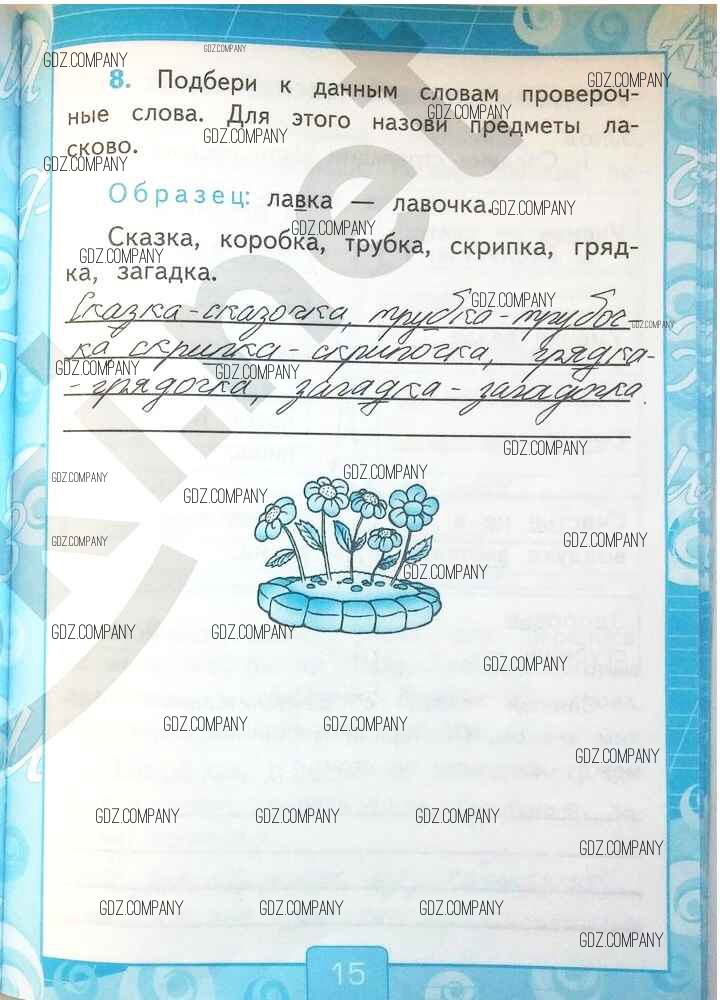 GDZ.COMPANY GDZ.COMPANY
8. Подбери к данным словам провероч-
GDZ.COMPANY
ные слова. Для этого назови предметы ла-
GDZ.COMPANY
GDZ.COMPANY
сково.
GDZ.COMPANY
Образец: лавка — лавочка.
GDZ.COMPANY
Сказка, коробка, трубка, скрипка, гряд-
GDZ.COMPANY
ка, загадка.
GDZ.COMPANY
Сказка-сказочка, трубка-трубоч-
GDZ.COMPANY
ка скрипка-скрипочка, грядка-
GDZ.COMPANY GDZ.COMPANY
-грядочка, загадка-загадочка.
GDZ.COMPANY
GDZ.COMPANY GDZ.COMPANY
GDZ.COMPANY
GDZ.COMPANY GDZ.COMPANY
GDZ.COMPANY
GDZ.COMPANY GDZ.COMPANY
GDZ.COMPANY
GDZ.COMPANY GDZ.COMPANY
GDZ.COMPANY
GDZ.COMPANY GDZ.COMPANY GDZ.COMPANY
GDZ.COMPANY
GDZ.COMPANY GDZ.COMPANY GDZ.COMPANY
GDZ.COMPANY
15